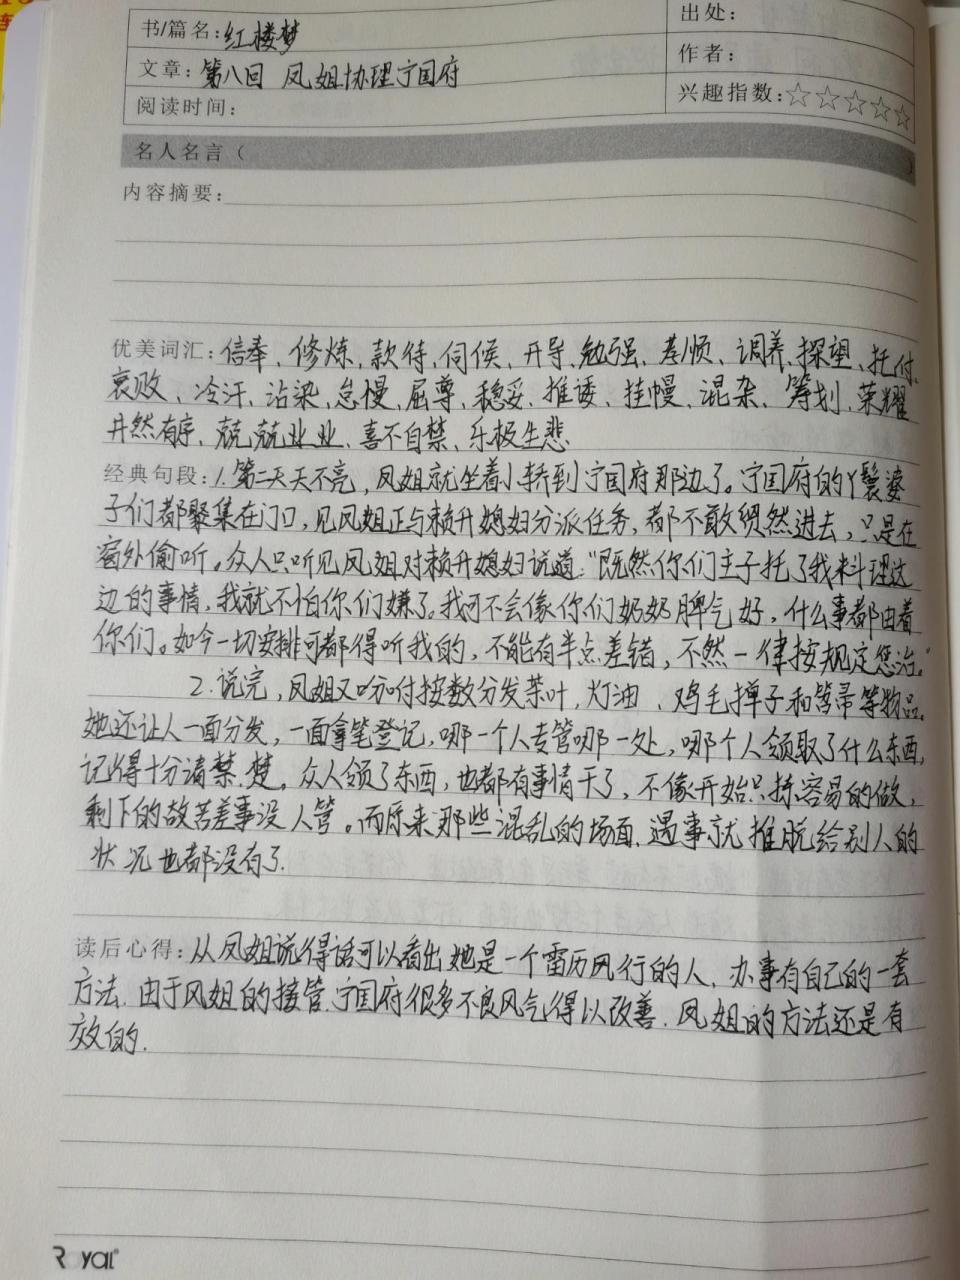 书/篇名：红楼梦
出处：
文章：第八回 凤姐协理宁国府
作者：
阅读时间：
兴趣指数：☆☆☆☆☆
名人名言（ ）
内容摘要：
优美词汇：信奉、修炼、款待、伺候、开导、勉强、差顺、调养、探望、托付、
衰败、冷汗、沾染、怠慢、屈尊、稳妥、推诿、挂幔、混杂、筹划、荣耀
井然有序、兢兢业业、喜不自禁、乐极生悲
经典句段：1.第二天天不亮，凤姐就坐着小轿到宁国府那边了。宁国府的丫鬟婆
子们都聚集在门口，见凤姐正与赖升媳妇分派任务，都不敢贸然进去，只是在
窗外偷听。众人只听见凤姐对赖升媳妇说道："既然你们主子托了我料理这
边的事情，我就不怕你们嫌了。我可不会像你们奶奶脾气好，什么事都由着
你们。如今一切安排可都得听我的，不能有半点差错，不然一律按规定惩治。"
2.说完，凤姐又吩咐按数分发茶叶，灯油、鸡毛掸子和笤帚等物品。
她还让人一面分发，一面拿笔登记，哪一个人专管哪一处，哪个人领取了什么东西，
记得十分清楚。众人领了东西，也都有事情干了，不像开始只拣容易的做，
剩下的苦差事没人管。而原来那些混乱的场面，遇事就推脱给别人的
状况也都没有了.
读后心得：从凤姐说得话可以看出她是一个雷厉风行的人，办事有自己的一套
方法.由于凤姐的接管.宁国府很多不良风气得以改善.凤姐的方法还是有
效的.
Royal